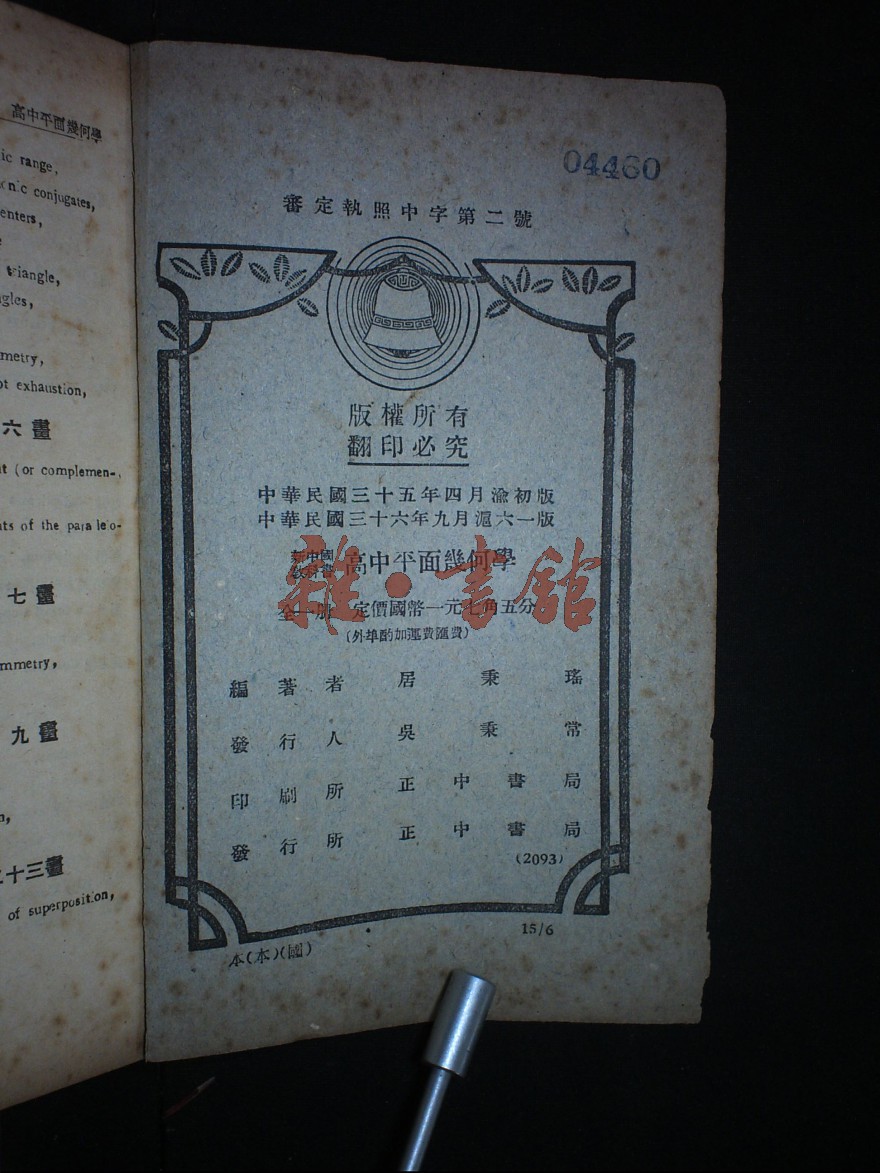 高中平面幾何學
ic range,
nic conjugates,
enters,
triangle,
gles,
metry,
exhaustion,
六畫
(or complemen-,
nts of the paralelo-
七畫
mmetry,
九畫
十三畫
of superposition,
04460
審定執照中字第二號
版權所有
翻印必究
中華民國三十五年四月渝初版
中華民國三十六年九月滬六一版
新中國教科書 高中平面幾何學
全一冊 定價國幣一元七角五分
(外埠酌加運費匯費)
編著者 居秉瑤
發行人 吳秉常
印刷所 正中書局
發行所 正中書局
(2093)
本(本)(國)
15/6
雜·書館